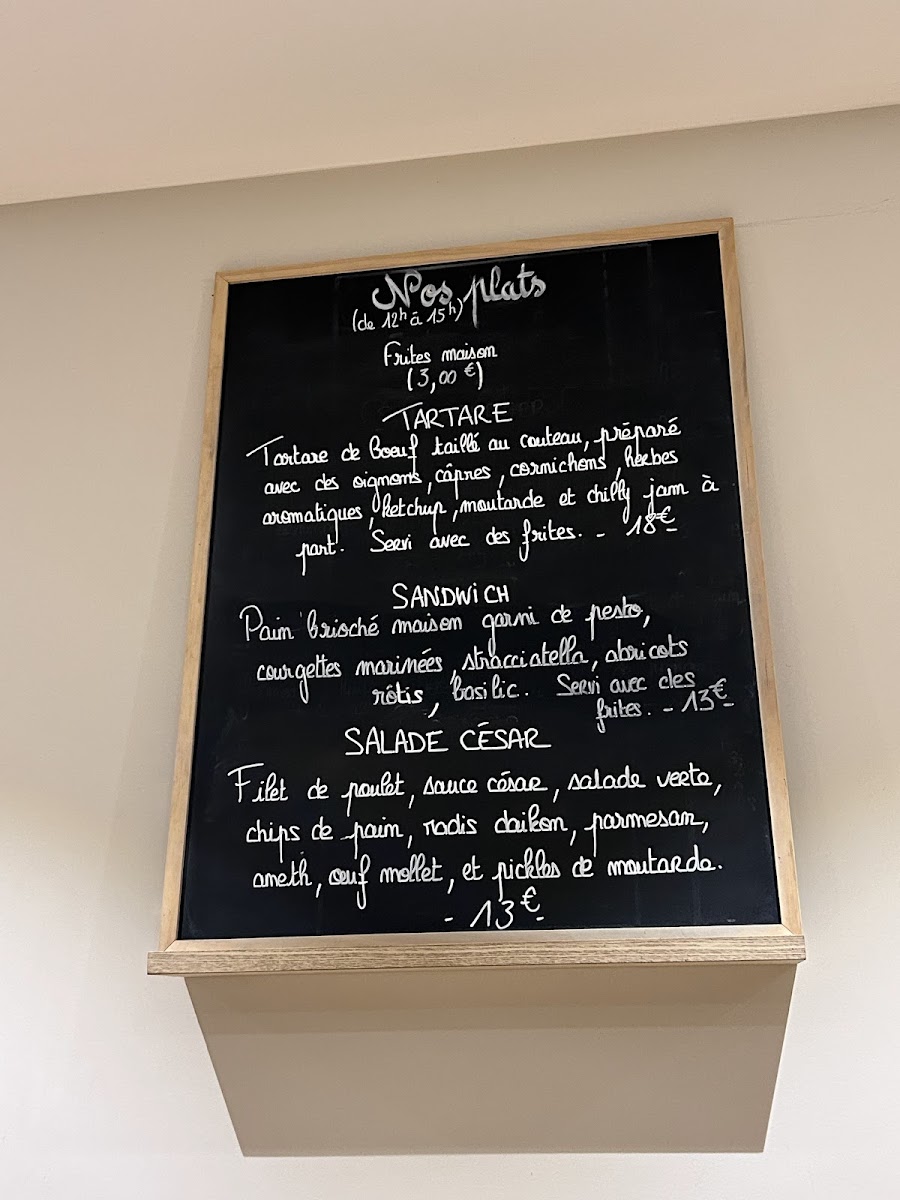 Nos plats
(de 12h à 15h)
Frites maison
(3,00 €)
TARTARE
Tartare de boeuf taillé au couteau, préparé
avec des oignons, câpres, cornichons, herbes
aromatiques, ketchup, moutarde et chilly jam à
part. Servi avec des frites. - 18€-
SANDWICH
Pain brioché maison garni de pesto,
courgettes marinées, stracciatella, abricots
rôtis, basilic. Servi avec des
frites. - 13€-
SALADE CÉSAR
Filet de poulet, sauce césar, salade verte,
chips de pain, radis daikon, parmesan,
aneth, œuf mollet, et pickles de moutarde.
- 13€-